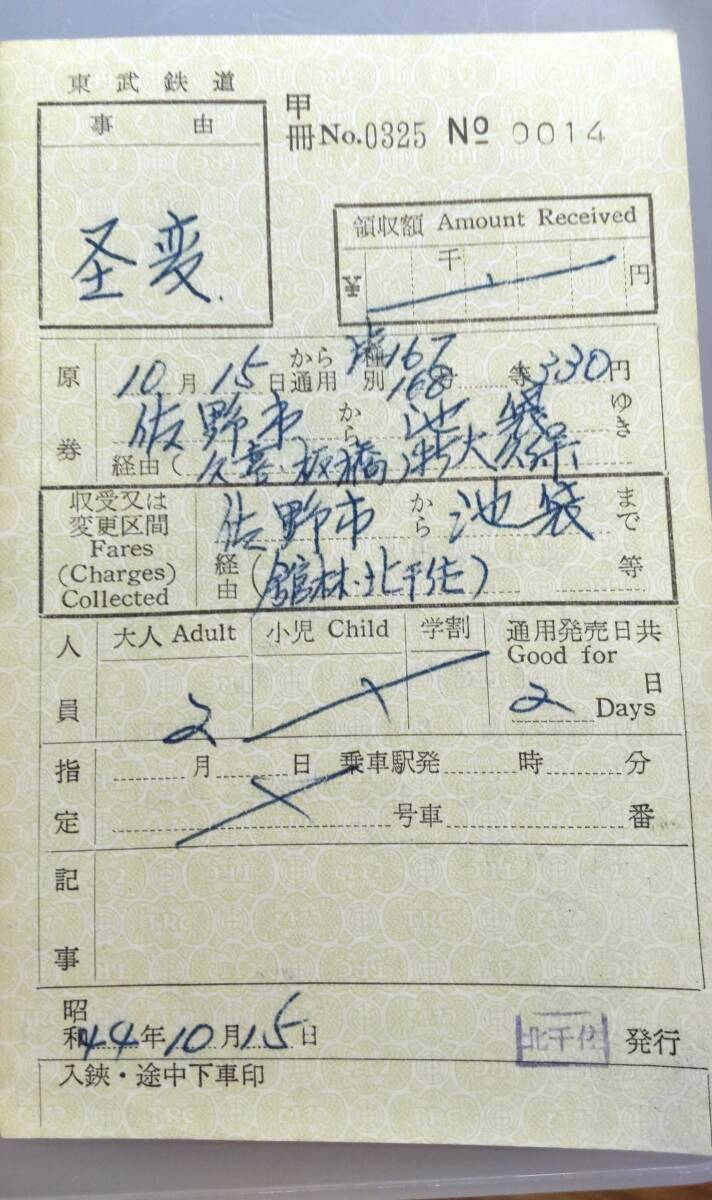 東武鉄道
甲
冊 No.0325 No 0014
事由
圣変.
領収額 Amount Received
千
円
原券
10月15日から通用 種別 167 168 号 等 330円
佐野市から池袋ゆき
経由(久喜・板橋, 新大久保
収受又は
変更区間
Fares
(Charges)
Collected
佐野市から池袋まで
経由(館林・北千住) 等
人員
大人 Adult 小児 Child 学割
2
通用発売日共
Good for
2日
Days
指定
月 日 乗車駅発 時 分
号車 番
記事
昭和44年10月15日
北千住 発行
入鋏・途中下車印